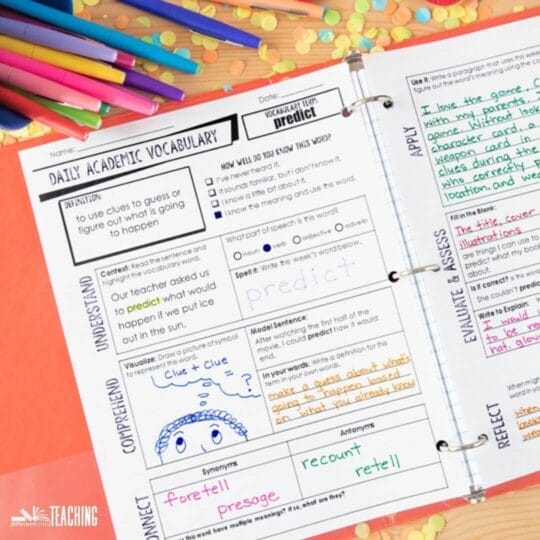 Name:
Date:
DAILY ACADEMIC VOCABULARY
VOCABULARY TERM:
predict
DEFINITION:
to use clues to guess or
figure out what is going
to happen
HOW WELL DO YOU KNOW THIS WORD?
I've never heard it.
It sounds familiar, but I don't know it.
I know a little bit about it.
I know the meaning and use this word.
UNDERSTAND
Context: Read the sentence and
highlight the vocabulary word.
Our teacher asked us
to predict what would
happen if we put ice
out in the sun.
What part of speech is this word?
noun verb adjective adverb
Spell it: Write this week's word below.
predict
COMPREHEND
Visualize: Draw a picture of symbol
to represent this word.
Clue + Clue
= ?
Model Sentence:
After watching the first half of the
movie, I could predict how it would
end.
In your words: Write a definition for this
term in your own words.
make a guess about what's
going to happen based
on what you already know
CONNECT
Synonyms
foretell
presage
Antonyms
recount
retell
this word have multiple meanings? If so, what are they?
APPLY
Use it: Write a paragraph that uses this week
figure out the word's meaning using the con
I love the game, C
with my parents,
game. Without look
character card, a
weapon card in
clues during the
who correctly p
location, and wea
EVALUATE & ASSESS
Fill in the Blank:
The title, cover
illustrations
are things I can use to
predict what my book
about.
Is it correct? Is the
She couldn't predic
Write to Explain:
I would
to be r
hat, glov
REFLECT
When might
your
when
book
wea
differentiated TEACHING